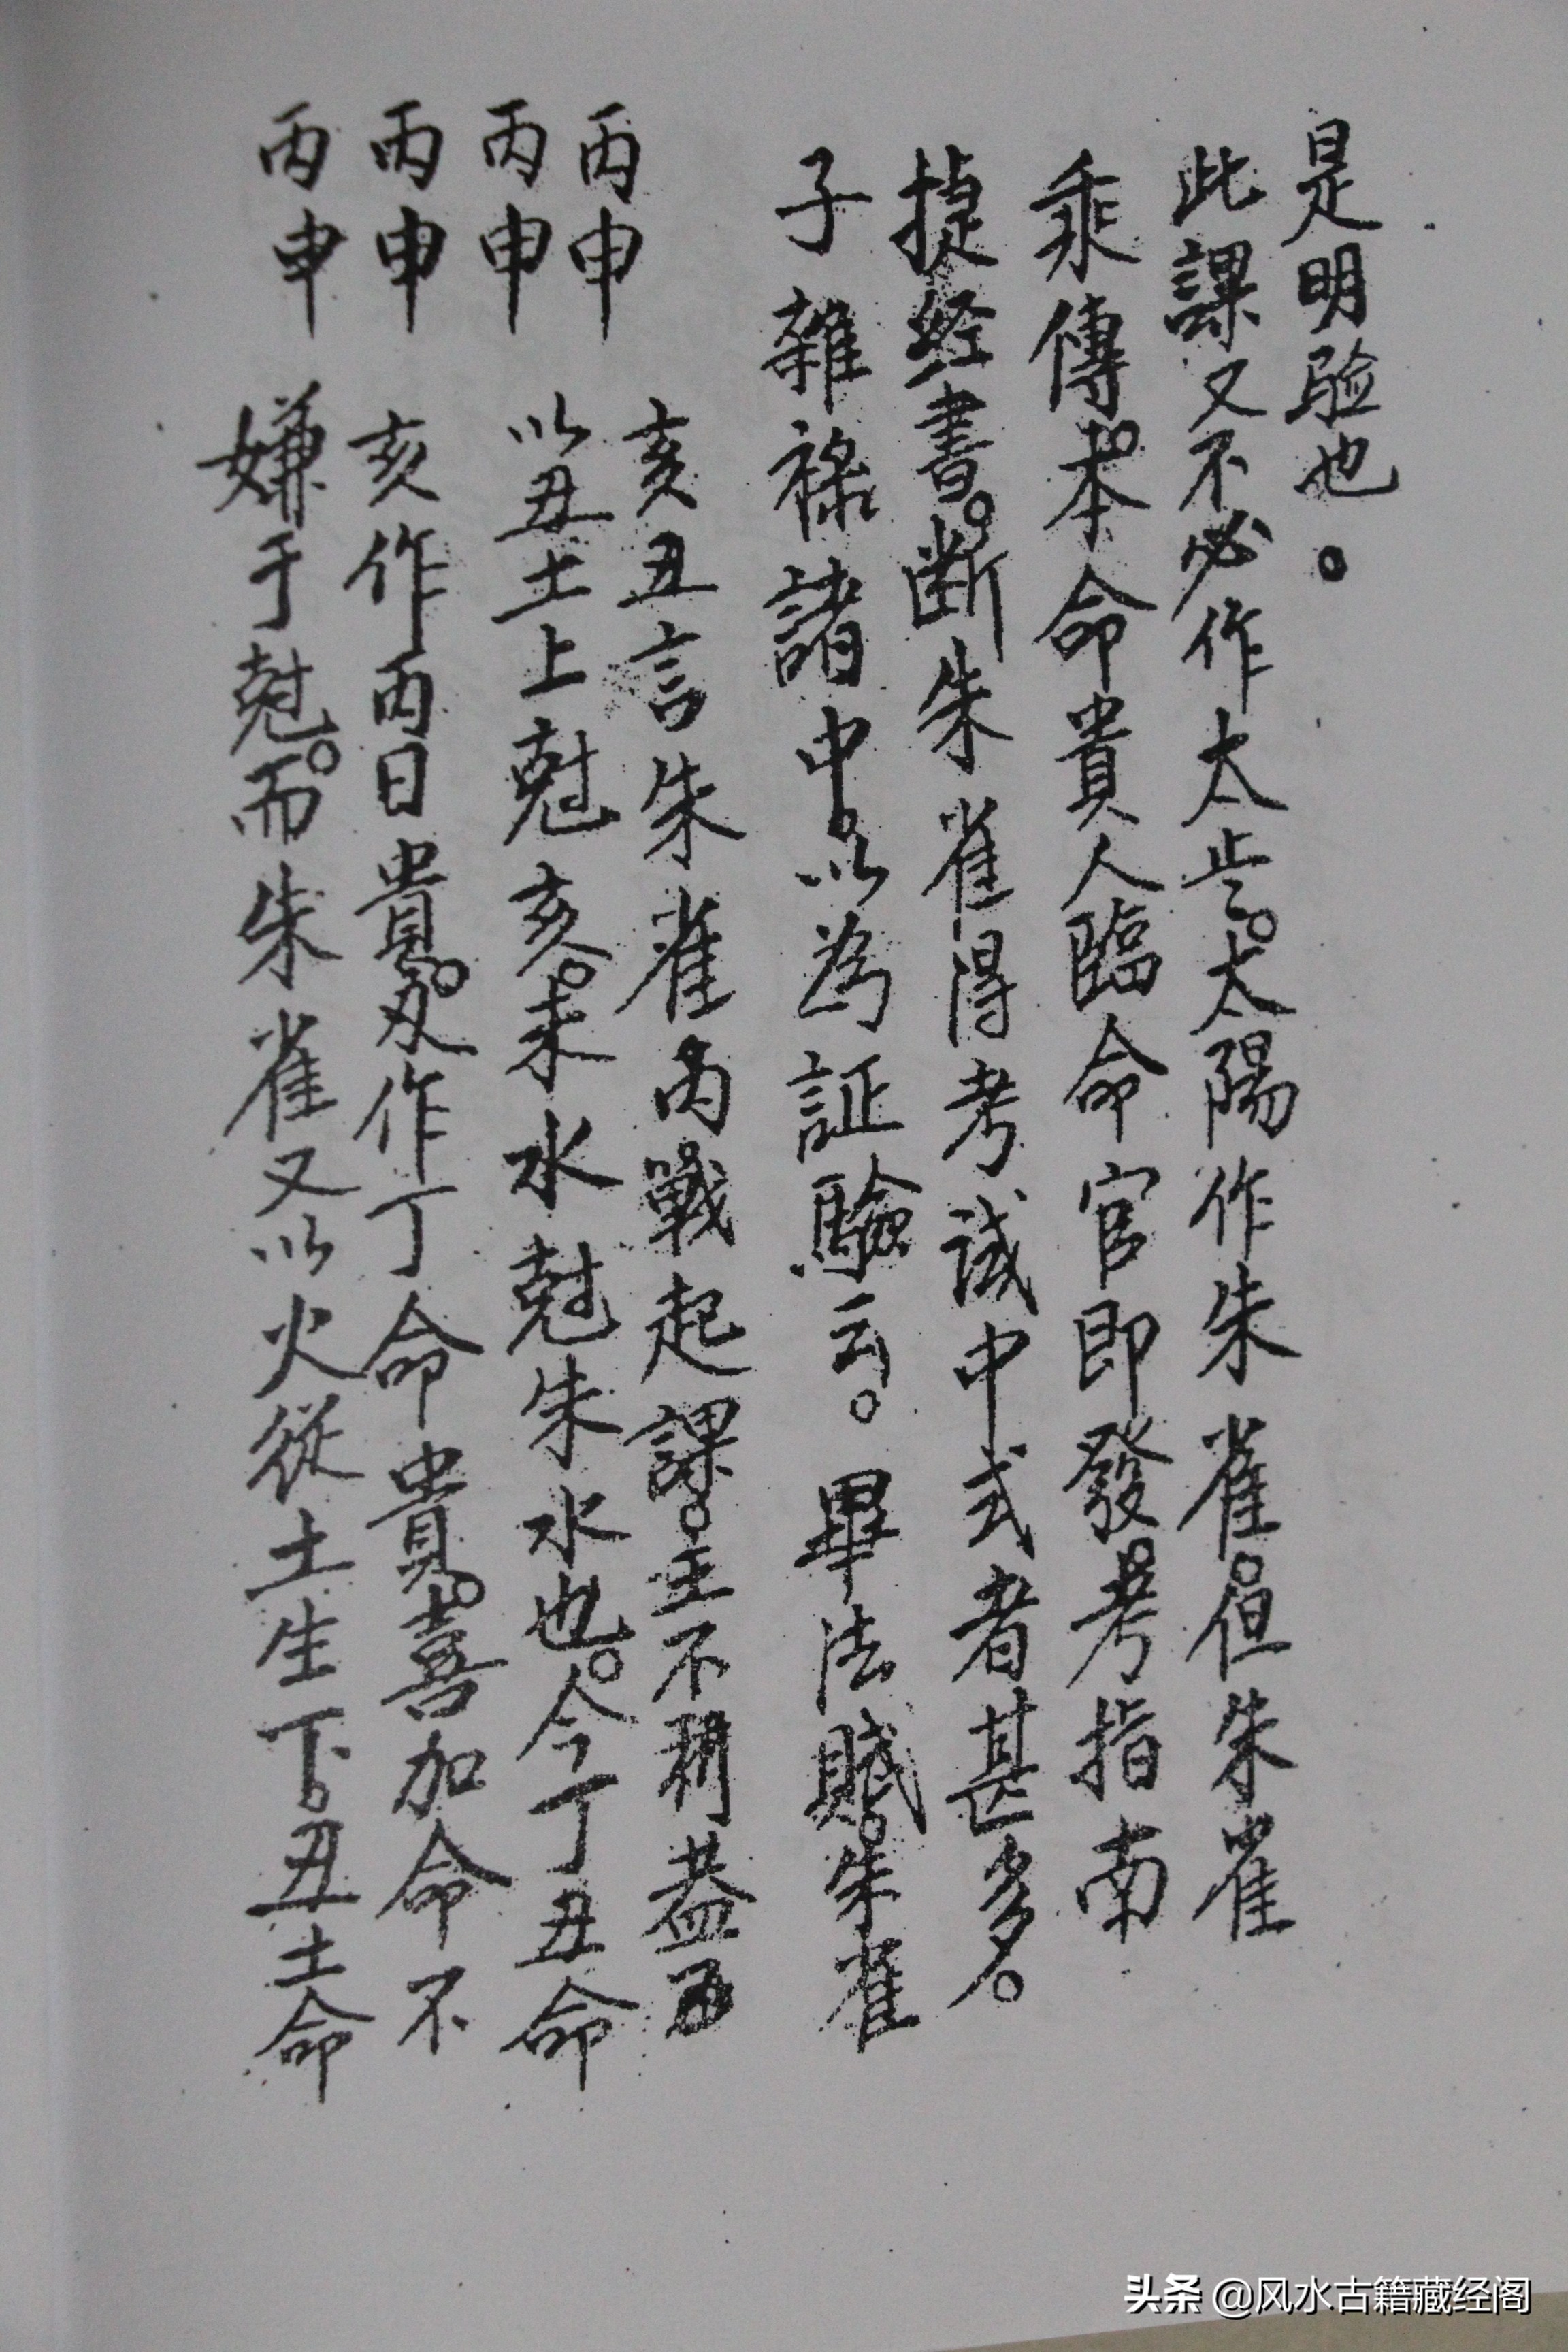 是明验也。
此課又不必作太歲。太陽作朱雀。但朱雀
乘傳。本命貴人臨命官即發。考指南
捷经書。断朱雀得考試中式者甚多。
子雜祿諸中。以為証驗云。畢法賦。朱雀
丙申 亥丑言朱雀内戰起課。主不利蓋
丙申 以丑土上尅亥。未水尅朱水也。今丁丑命
丙申 亥作丙日貴。又作丁命貴。喜加命不
丙申 嫌于尅。而朱雀又以火從土生下。丑土命
头条 @风水古籍藏经阁